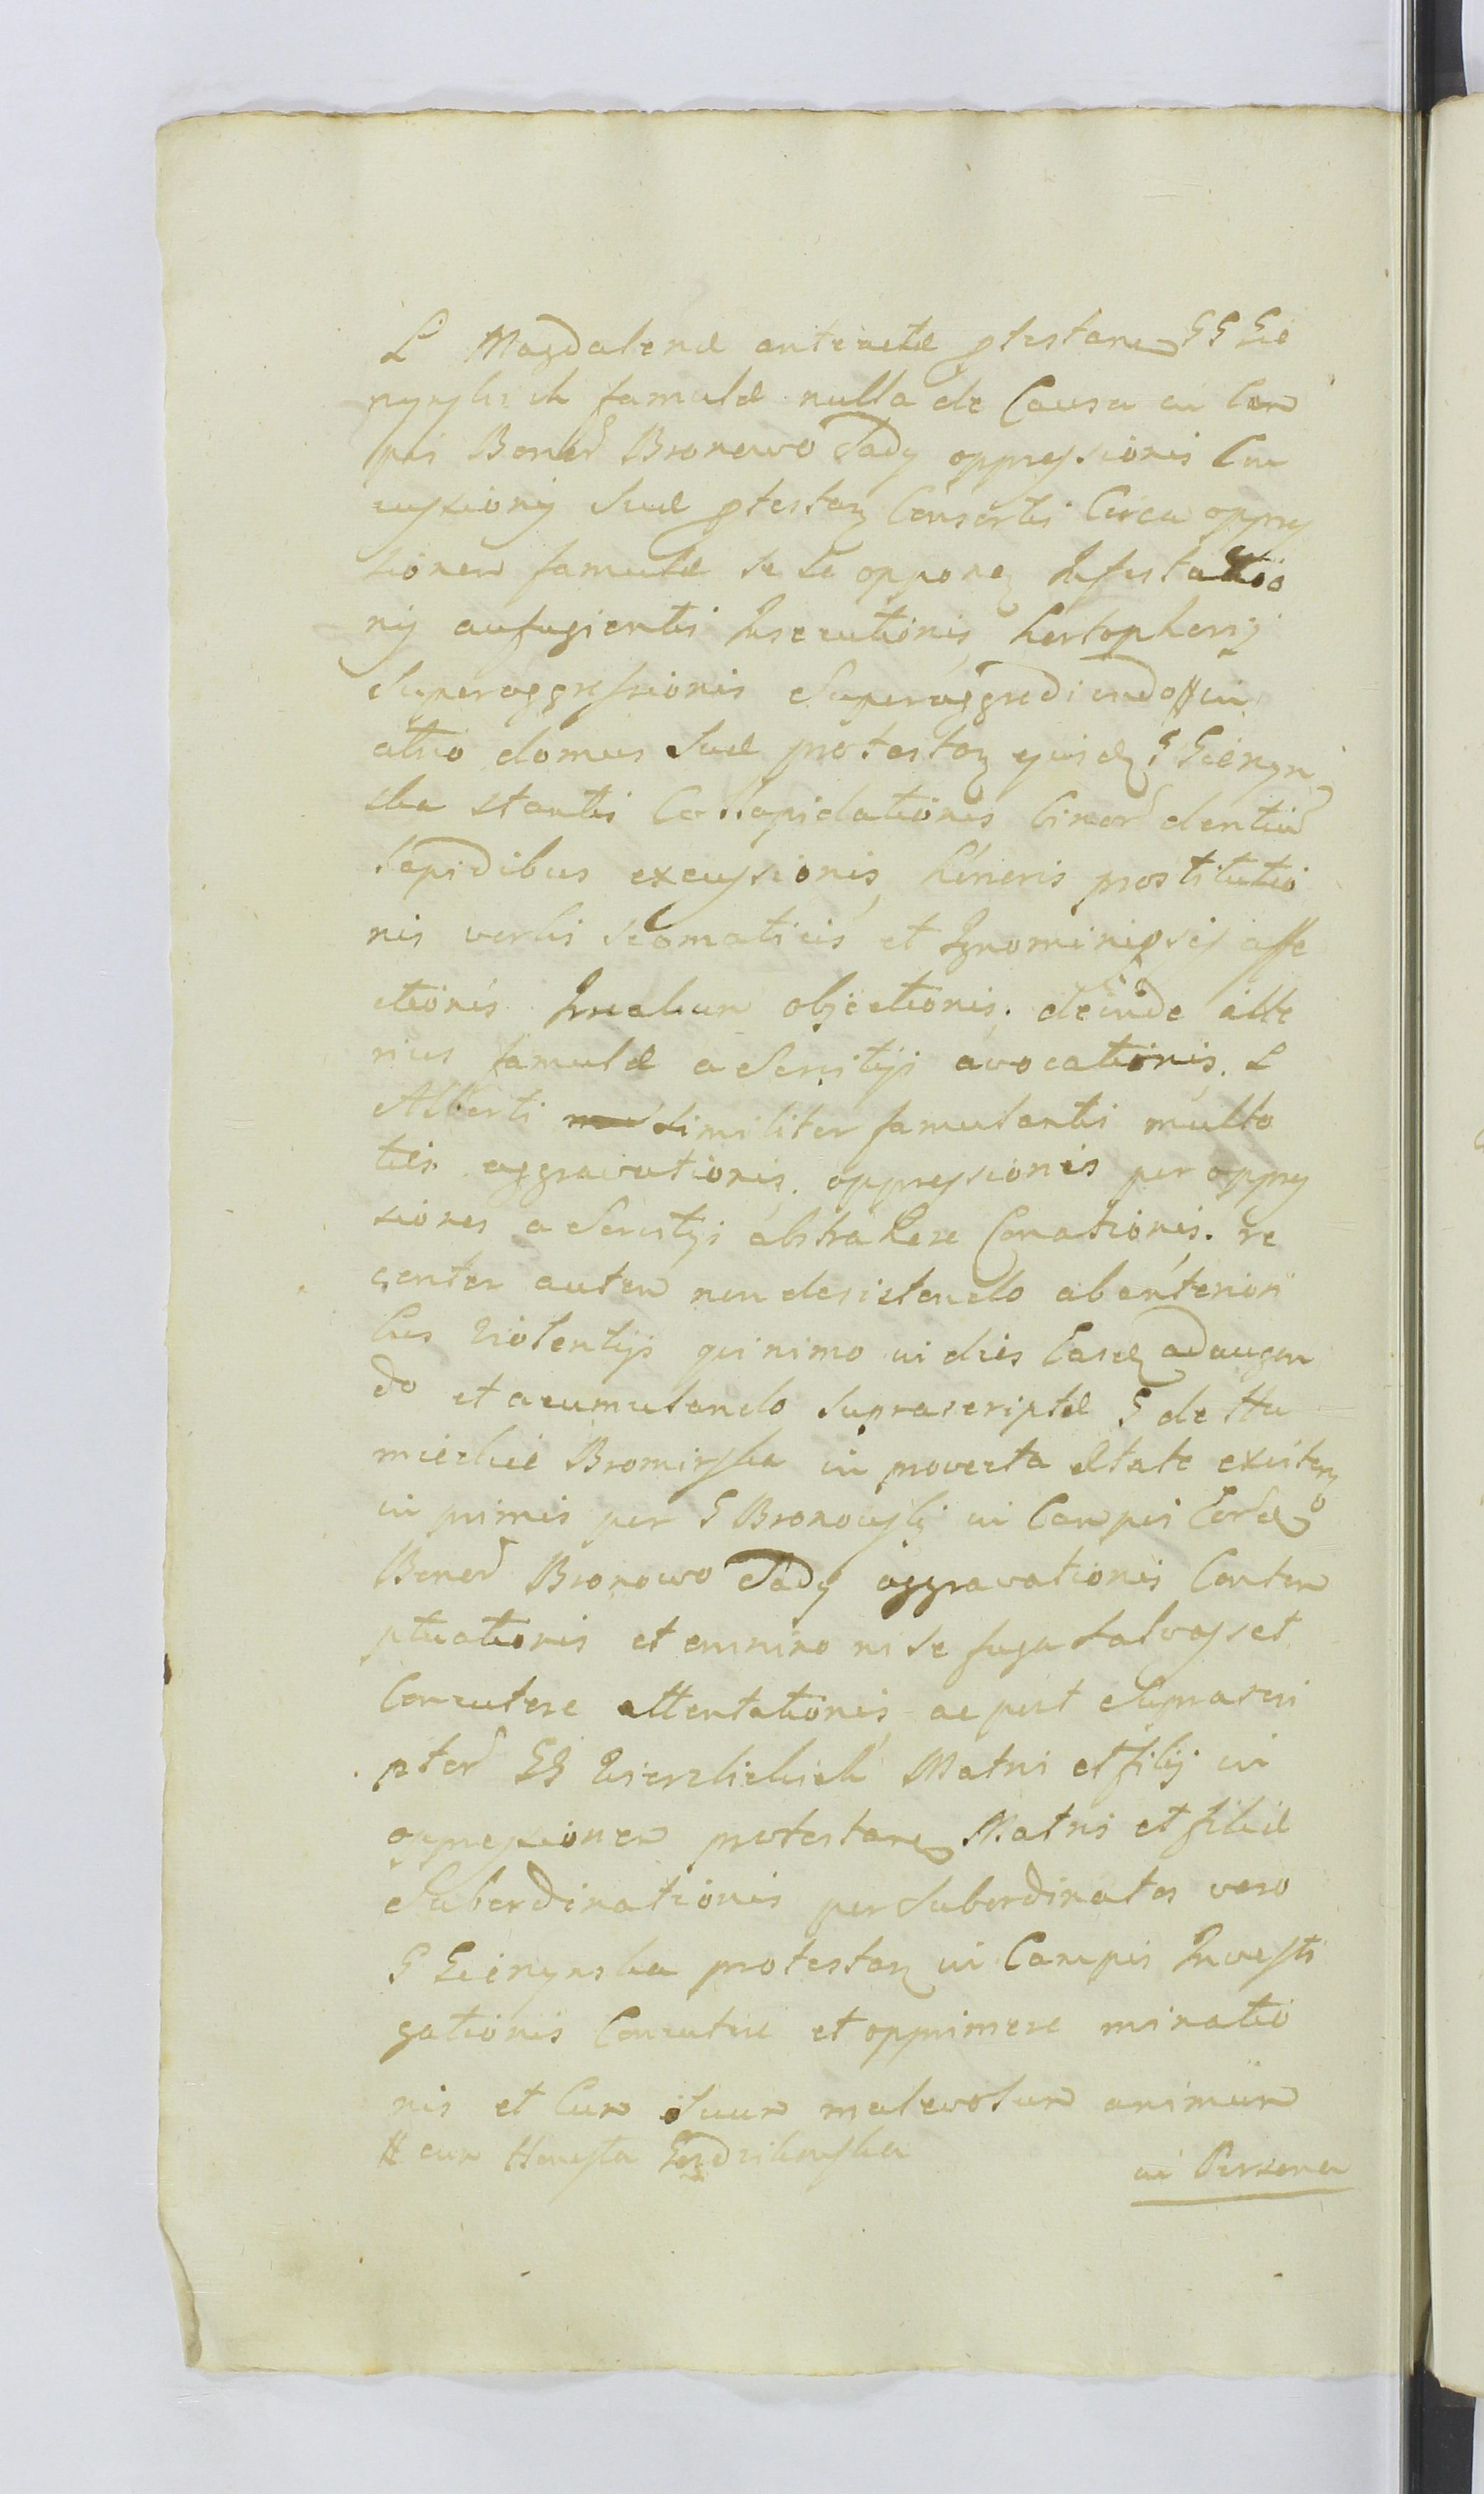 L Magdalenæ antenatæ ptestare GG Gio
nynskich famulæ nulla de Causa in Cam
pis Bonor Bronowo Sady oppressionis Con
cussionis Suæ ptestan Consortis Circa oppres
sionem famulæ se se opponen Infestatio
nis aufugientis Insecutionis hortophorij
Superaggressionis Superaggrediendo # in
atrio domus Suæ protestan ejusdem G Gionyn
ska stantis Collapidationis Cinor dentium
Lapidibus excussionis, honoris prostitutio
nis verbis scomaticis et Ignominiosis affe
ctionis objectionis. deinde alte
rius famulæ a Servitijs avocationis. L
Alberti similiter famulantis multo
ties aggravationis. oppressionis per oppres
siones a Servitijs abstrahere Conationis. re
center autem non desistendo ab anteriori
bus Violentijs quinimo in dies Easdem adaugen
do et acumulando Suprascriptæ G de
Bromirska in provecta ætate existen
in primis per G Bronowski in Campis Eordem
Bonor Bronowo Sady aggravationis Contem
ptuationis et omnino ni se fuga Salvasset
Concutere attentationis ac post Suprascri
ptor GG Wierzbickich Matris et filij in
oppressionem protestare Matris et filiæ
Subordinationis per Subordinatos vero
G Gionynska protestan in Campis Investi
gationis Concutere et opprimere minatio
nis et Cum Suum malevolum animum
# cum Honesta
in Persona